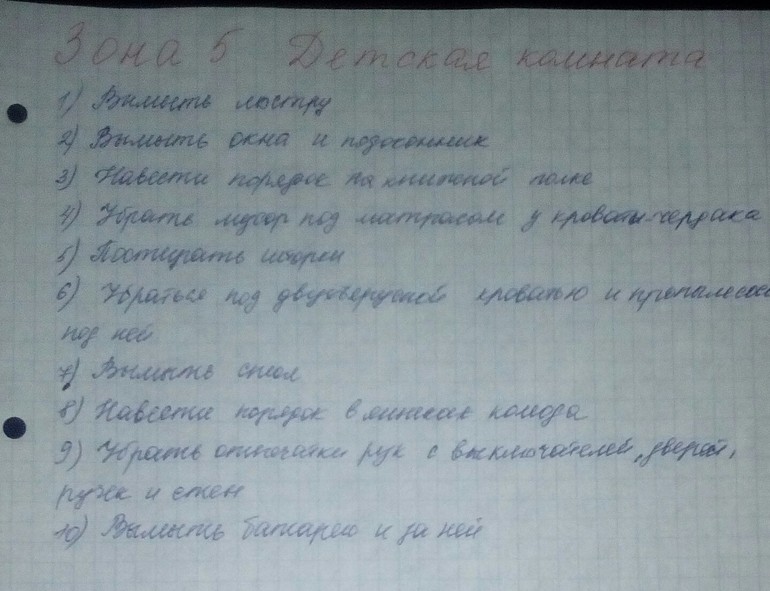 Зона 5 Детская комната
1) Вымыть люстру
2) Вымыть окна и подоконник
3) Навести порядок на книжной полке
4) Убрать мусор под матрасом у кровати-чердака
5) Постирать шторы
6) Убраться под двухъярусной кроватью и пропылесос
под ней
7) Вымыть стол
8) Навести порядок в ящиках комода
9) Убрать отпечатки рук с выключателей, дверей,
ручек и стен
10) Вымыть батарею и за ней